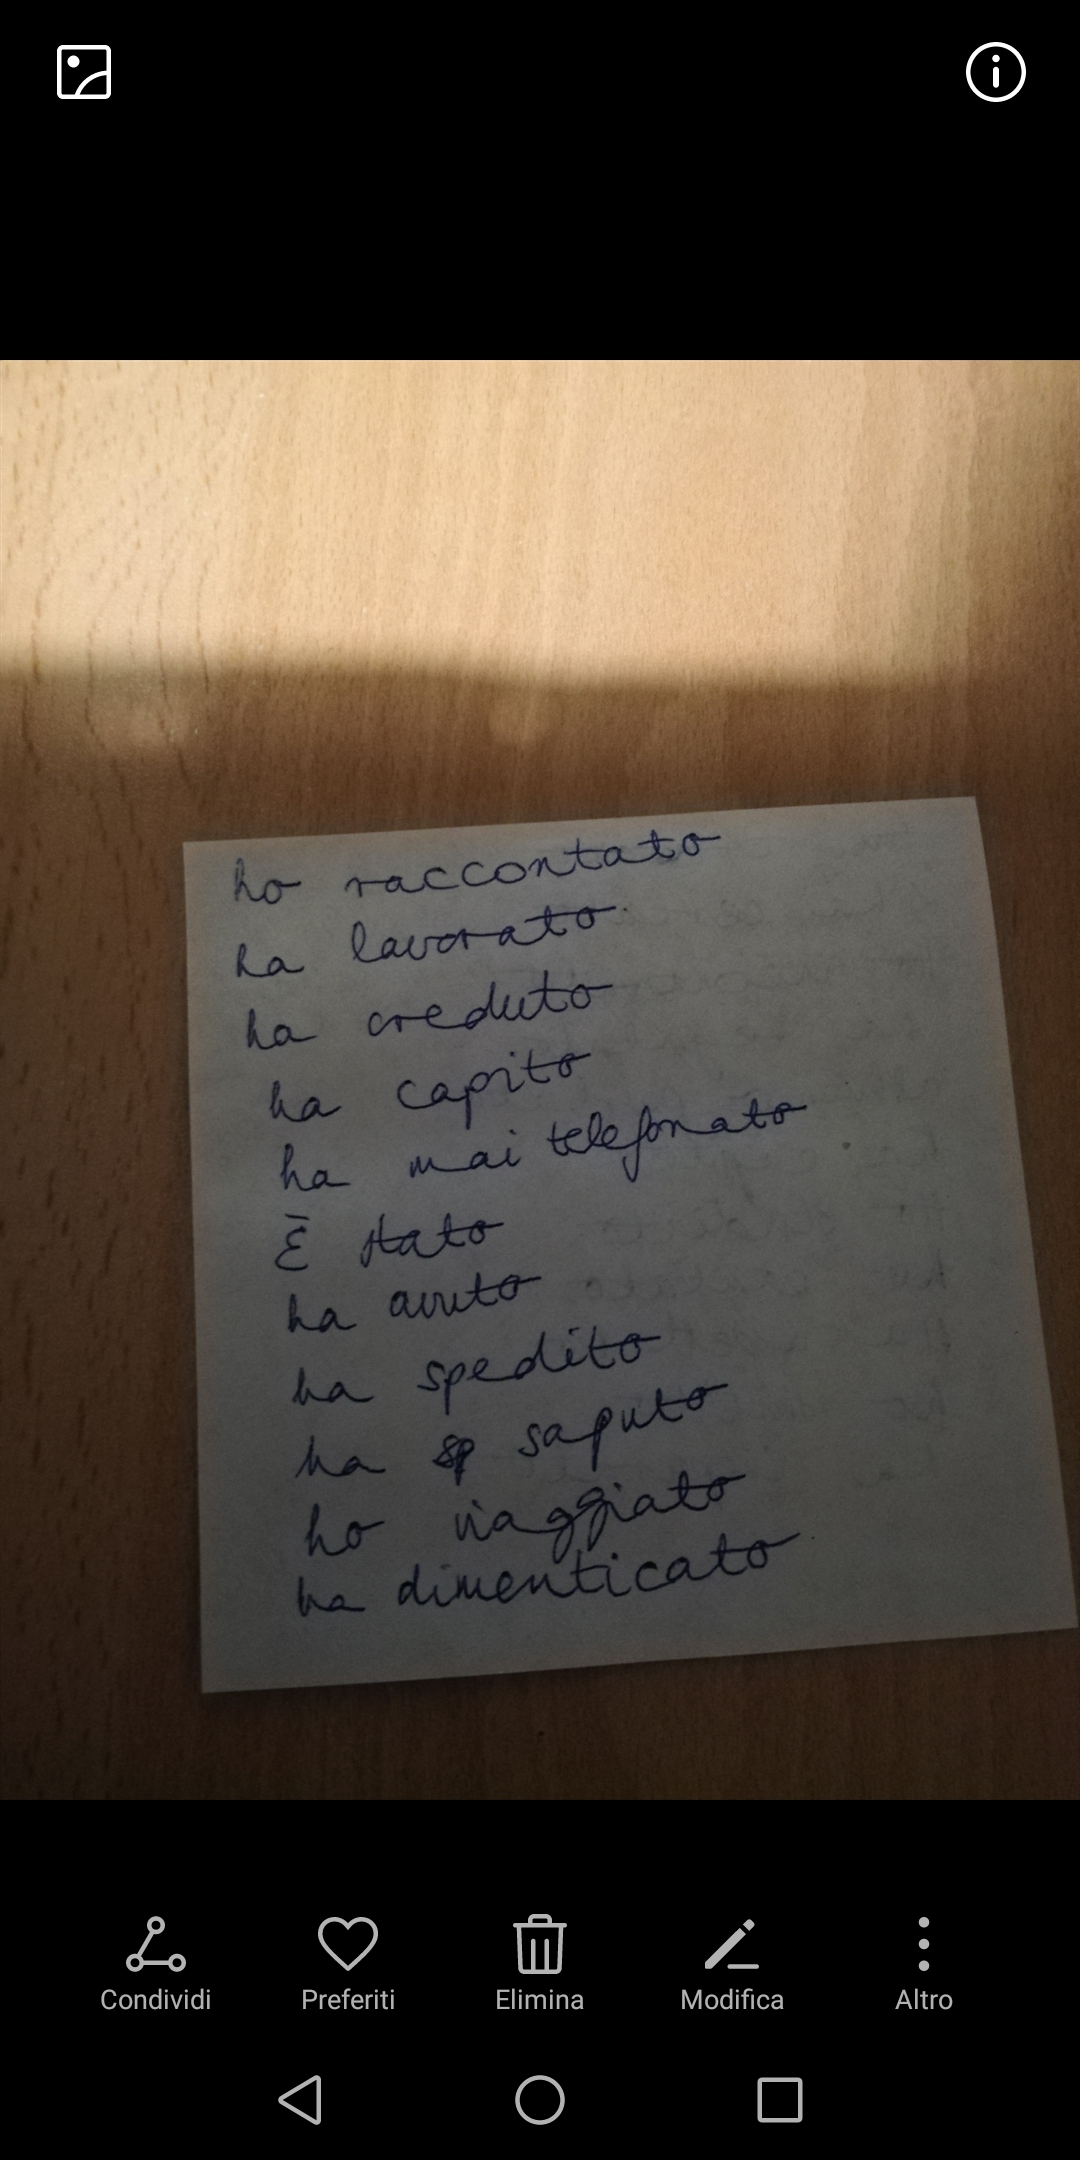 ho raccontato
ha lavorato
ha creduto
ha capito
ha mai telefonato
È stato
ha avuto
ha spedito
ha sp saputo
ho viaggiato
ha dimenticato
Condividi Preferiti Elimina Modifica Altro